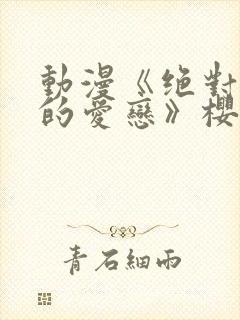 動漫《絕對
的愛戀》櫻
青石細雨